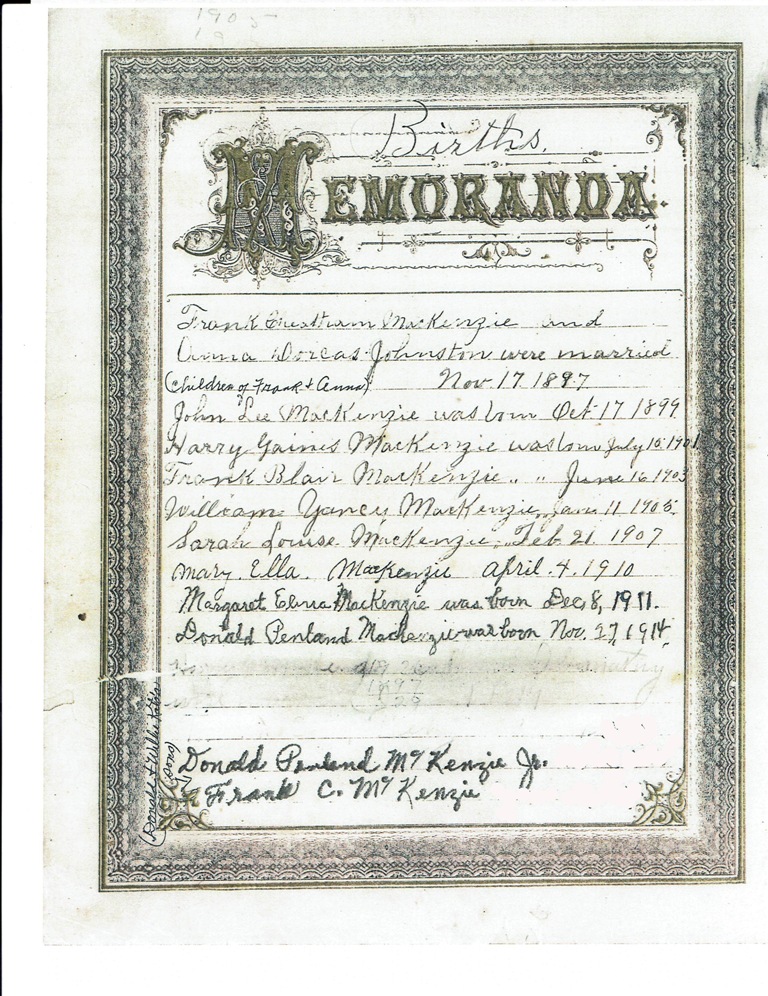 1905
19
Births.
MEMORANDA.
Frank Cheatham MacKenzie and
Anna Dorcas Johnston were married
(Children of Frank & Anna) Nov. 17 1897
John Lee MacKenzie was born Oct 17 1899
Harry Gaines MacKenzie was born July 15 1901
Frank Blair MacKenzie " " June 16 1903
William Yancy MacKenzie, June 11 1905.
Sarah Louise MacKenzie, Feb 21 1907
Mary. Ella. MacKenzie April. 4. 1910
Margaret MacKenzie was born Dec 8, 1911.
Donald Penland MacKenzie was born Nov. 27, 1914.
1897
Donald Penland McKenzie Jr.
Frank C. McKenzie
(Donald & Willie Kate's
Sons)